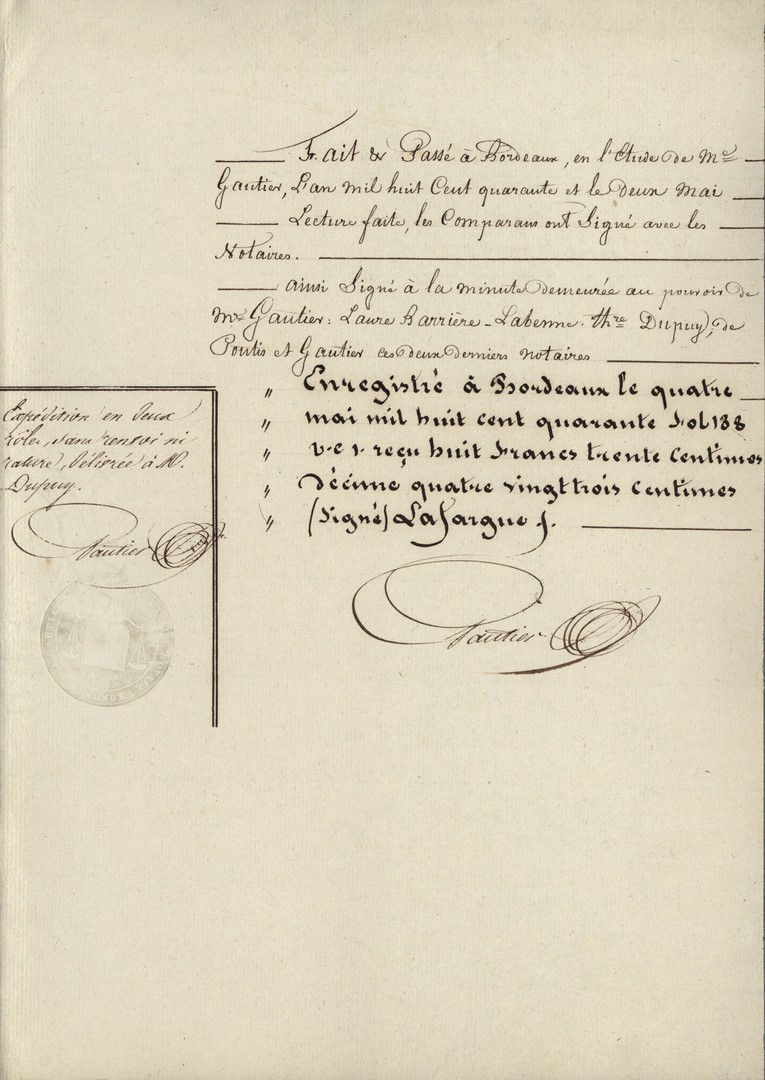 Fait & Passé à Bordeaux, en l'Etude de Me
Gautier, L'an mil huit Cent quarante et le Deux Mai
Lecture faite, les Comparans ont Signé avec les
Notaires.
ainsi Signé à la minute demeurée au pouvoir de
Me Gautier : Laure Barrière-Labenne. Thre Dupuy, de
Pontis et Gautier ces deux derniers notaires
" Enregistré à Bordeaux le quatre
" mai mil huit cent quarante fol 188
" v.c 1. reçu huit francs trente Centimes
" Décime quatre vingt trois centimes
" (Signé) Lafargue f.
Expédition en Deux
rôles, sans renvoi ni
rature, Délivrée à M.
Dupuy.
Gautier
Gautier